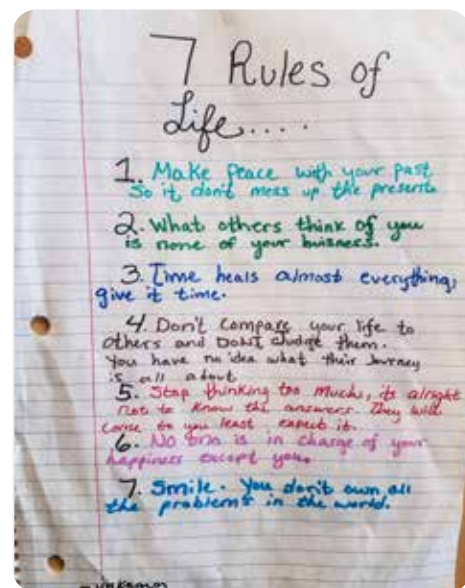 7 Rules of
Life....
1. Make Peace with your past
So it don't mess up the present.
2. What others think of you
is none of your buisness.
3. Time heals almost everything,
give it time.
4. Don't Compare your life to
others and Don't Judge them.
You have no idea what their Journey
is all about
5. Stop thinking too much, its alright
not to know the answers. They will
come to you least expect it.
6. No one is in charge of your
happiness except you.
7. Smile. You don't own all
the problems in the world.
- unknown